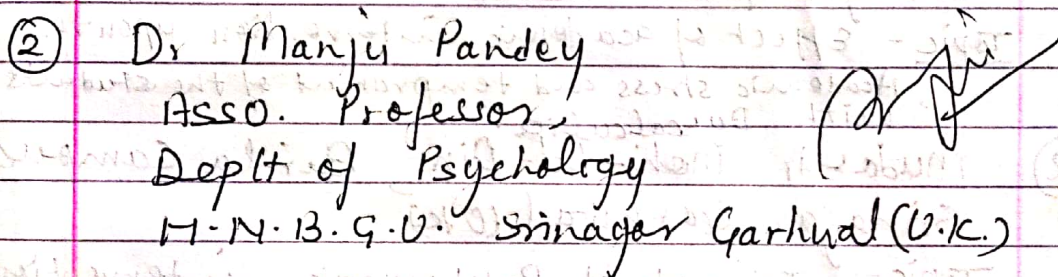 ② Dr Manju Pandey
Asso. Professor,
Deptt of Psychology
H.N.B.G.U. Srinagar Garhwal (U.K.)